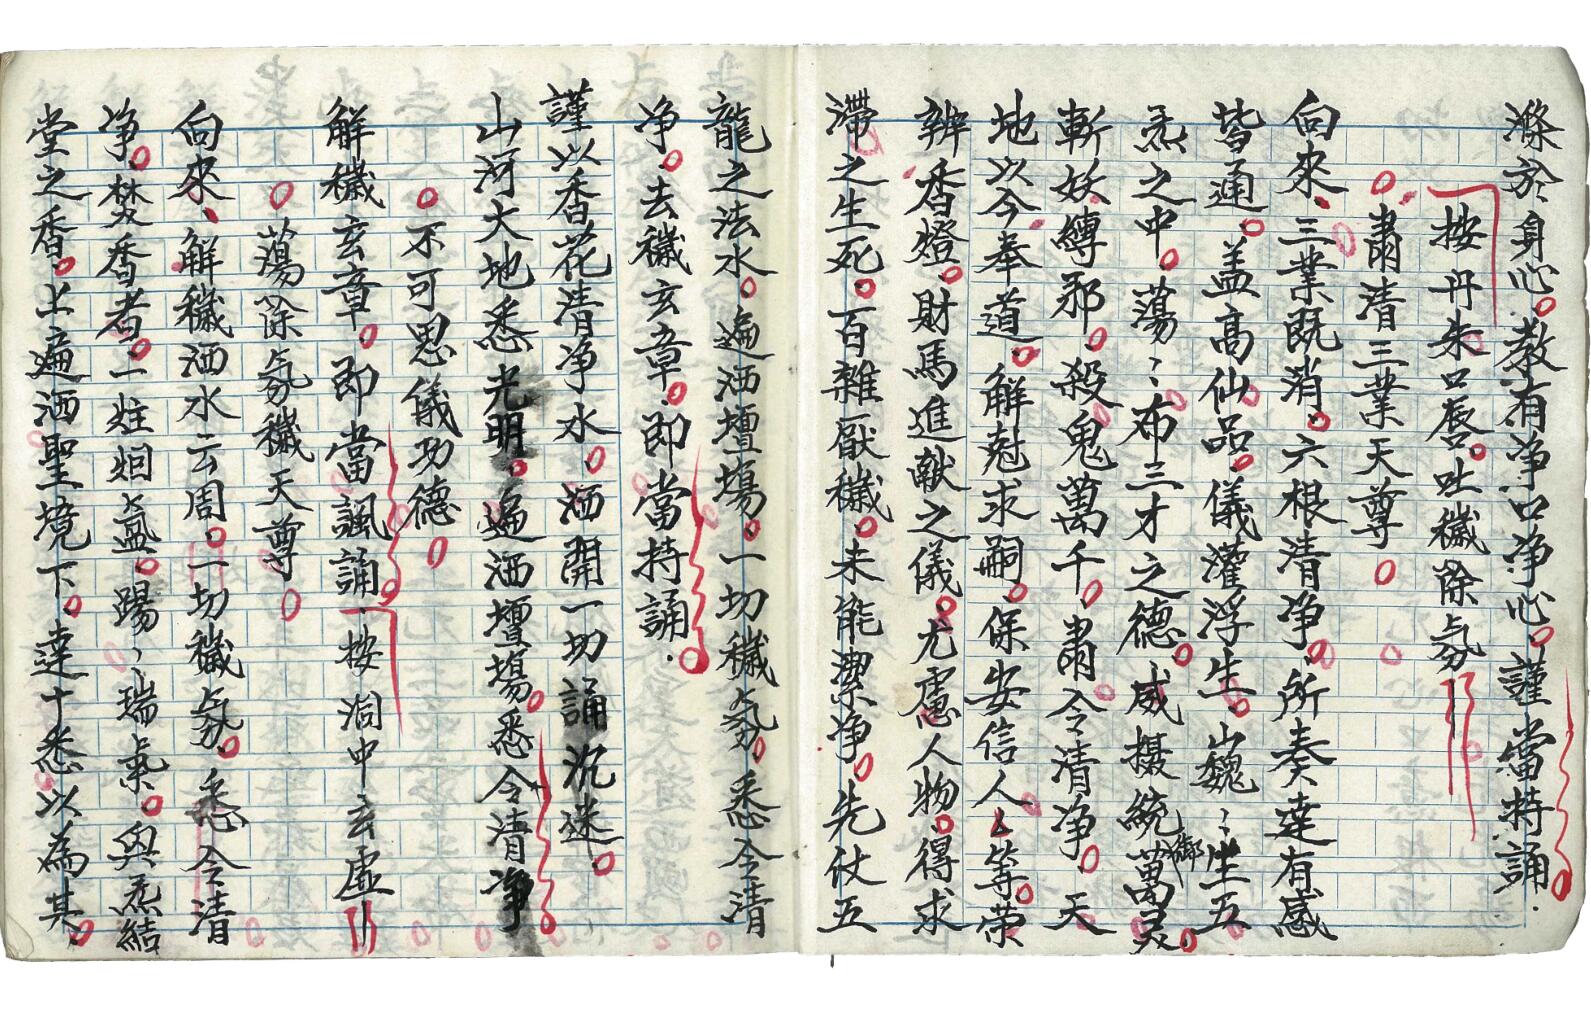 滌於身心。教有净口净心。謹當持誦.
按丹朱口唇。吐穢除氛
肅清三業天尊
向來、三業既消。六根清净。所奏達有感
皆通。盖高仙品。儀灌浮生。山巍〻生五
炁之中。蕩〻布三才之德。威摄統御萬灵。
斬妖縛邪。殺鬼萬千。肅令清净。天
地以今奉道。解尅求嗣。保安信人々等。荣
辨香燈。財馬進献之儀。尤慮人物。得求
滯之生死。百雜厭穢。未能潔净。先仗五
龍之法水。遍洒壇場。一切穢氛。悉令清
净。去穢玄章。即當持誦.
謹以香花清净水。洒開一切誦沉迷。
山河大地悉光明。遍洒壇場。悉令清净
不可思儀功德
解穢玄章。即當諷誦、按洞中玄虛
蕩除氛穢天尊
向來、解穢洒水云周。一切穢氛。悉令清
净。焚香者。一炷烟盒。賜〻瑞氣。與炁結
堂之香。上遍洒聖境下。達十悉以為其、